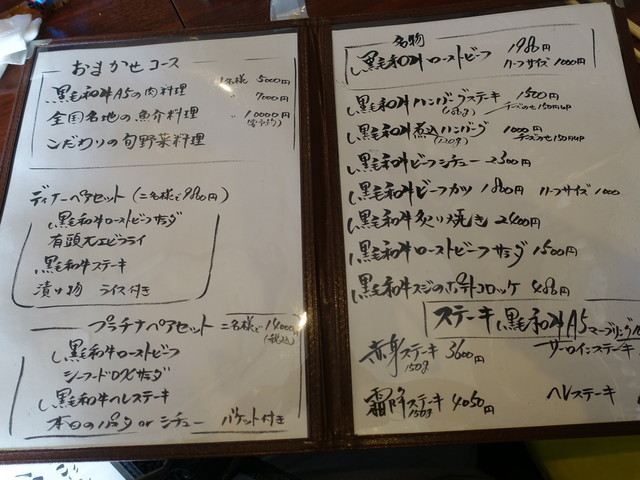 おまかせコース
一名様 5000円
黒毛和牛A5の肉料理
〃 7000円
全国名地の魚介料理
〃 10000円
こだわりの旬野菜料理
ディナーペアセット (二名様で9800円)
黒毛和牛ローストビーフサラダ
有頭大エビフライ
黒毛和牛ステーキ
漬け物 ライス付き
プラチナペアセット 二名様で14000円
(税込)
黒毛和牛ローストビーフ
シーフードサラダ
黒毛和牛ヘレステーキ
本日のパスタ or シチュー バケット付き
名物
黒毛和牛ローストビーフ 1980円
ハーフサイズ 1000円
黒毛和牛ハンバーグステーキ 1500円
チーズのせ150円UP
黒毛和牛煮込ハンバーグ 1000円
チーズのせ150円UP
黒毛和牛ビーフシチュー 2300円
黒毛和牛ビーフカツ 1800円 ハーフサイズ 1000
黒毛和牛炙り焼き 2400円
黒毛和牛ローストビーフサラダ 1500円
黒毛和牛スジのポテトコロッケ 480円
ステーキ 黒毛和牛A5マーブリング
赤身ステーキ 3600円
150g
サーロインステーキ
霜降ステーキ 4050円
150g
ヘレステーキ